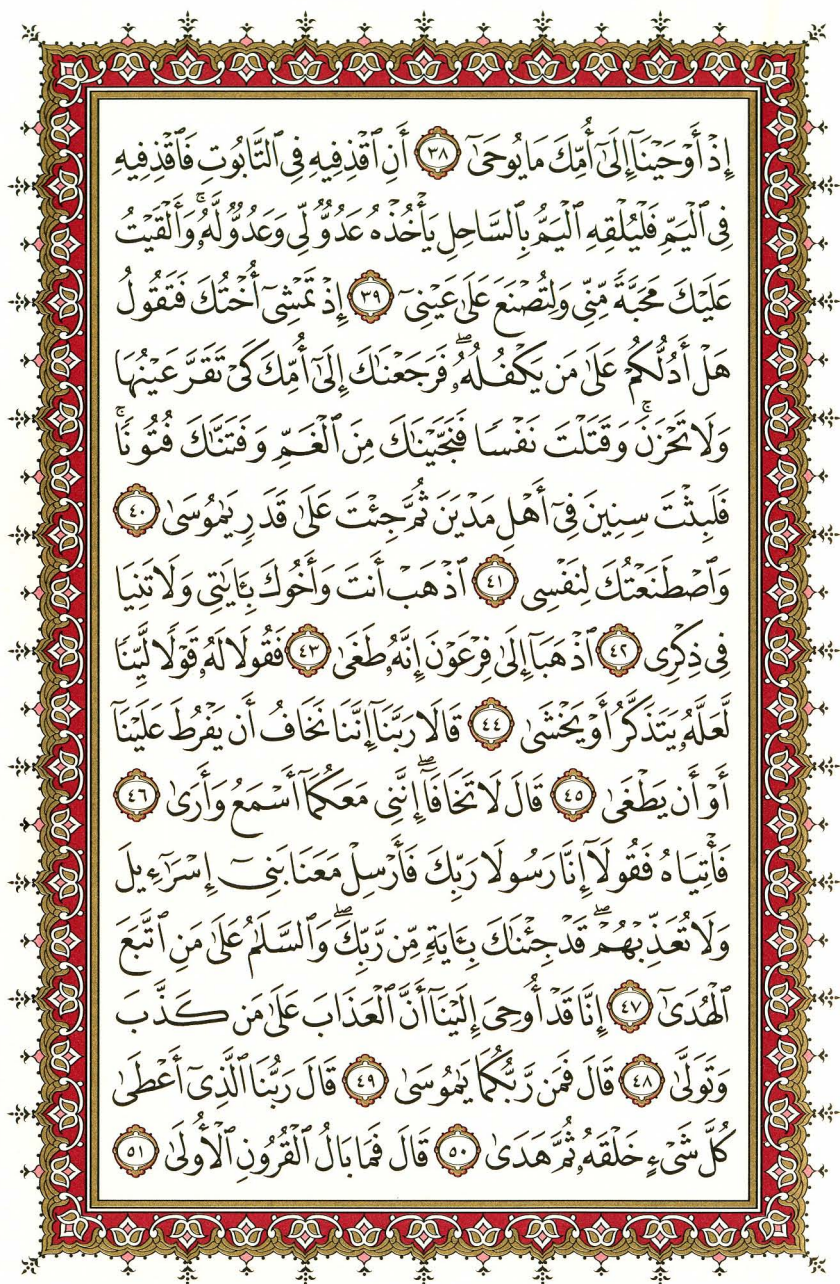 إِذْ أَوْحَيْنَآ إِلَىٰٓ أُمِّكَ مَا يُوحَىٰٓ ٣٨ أَنِ ٱقْذِفِيهِ فِى ٱلتَّابُوتِ فَٱقْذِفِيهِ
فِى ٱلْيَمِّ فَلْيُلْقِهِ ٱلْيَمُّ بِٱلسَّاحِلِ يَأْخُذْهُ عَدُوٌّ لِّى وَعَدُوٌّ لَّهُۥۚ وَأَلْقَيْتُ
عَلَيْكَ مَحَبَّةً مِّنِّى وَلِتُصْنَعَ عَلَىٰ عَيْنِىٓ ٣٩ إِذْ تَمْشِىٓ أُخْتُكَ فَتَقُولُ
هَلْ أَدُلُّكُمْ عَلَىٰ مَن يَكْفُلُهُۥۖ فَرَجَعْنَٰكَ إِلَىٰٓ أُمِّكَ كَىْ تَقَرَّ عَيْنُهَا
وَلَا تَحْزَنَۚ وَقَتَلْتَ نَفْسًا فَنَجَّيْنَٰكَ مِنَ ٱلْغَمِّ وَفَتَنَّٰكَ فُتُونًاۚ
فَلَبِثْتَ سِنِينَ فِىٓ أَهْلِ مَدْيَنَ ثُمَّ جِئْتَ عَلَىٰ قَدَرٍ يَٰمُوسَىٰ ٤٠
وَٱصْطَنَعْتُكَ لِنَفْسِى ٤١ ٱذْهَبْ أَنتَ وَأَخُوكَ بِـَٔايَٰتِى وَلَا تَنِيَا
فِى ذِكْرِى ٤٢ ٱذْهَبَآ إِلَىٰ فِرْعَوْنَ إِنَّهُۥ طَغَىٰ ٤٣ فَقُولَا لَهُۥ قَوْلًا لَّيِّنًا
لَّعَلَّهُۥ يَتَذَكَّرُ أَوْ يَخْشَىٰ ٤٤ قَالَا رَبَّنَآ إِنَّنَا نَخَافُ أَن يَفْرُطَ عَلَيْنَآ
أَوْ أَن يَطْغَىٰ ٤٥ قَالَ لَا تَخَافَآۖ إِنَّنِى مَعَكُمَآ أَسْمَعُ وَأَرَىٰ ٤٦
فَأْتِيَاهُ فَقُولَآ إِنَّا رَسُولَا رَبِّكَ فَأَرْسِلْ مَعَنَا بَنِىٓ إِسْرَٰٓءِيلَ
وَلَا تُعَذِّبْهُمْۖ قَدْ جِئْنَٰكَ بِـَٔايَةٍ مِّن رَّبِّكَۖ وَٱلسَّلَٰمُ عَلَىٰ مَنِ ٱتَّبَعَ
ٱلْهُدَىٰٓ ٤٧ إِنَّا قَدْ أُوحِىَ إِلَيْنَآ أَنَّ ٱلْعَذَابَ عَلَىٰ مَن كَذَّبَ
وَتَوَلَّىٰ ٤٨ قَالَ فَمَن رَّبُّكُمَا يَٰمُوسَىٰ ٤٩ قَالَ رَبُّنَا ٱلَّذِىٓ أَعْطَىٰ
كُلَّ شَىْءٍ خَلْقَهُۥ ثُمَّ هَدَىٰ ٥٠ قَالَ فَمَا بَالُ ٱلْقُرُونِ ٱلْأُولَىٰ ٥١